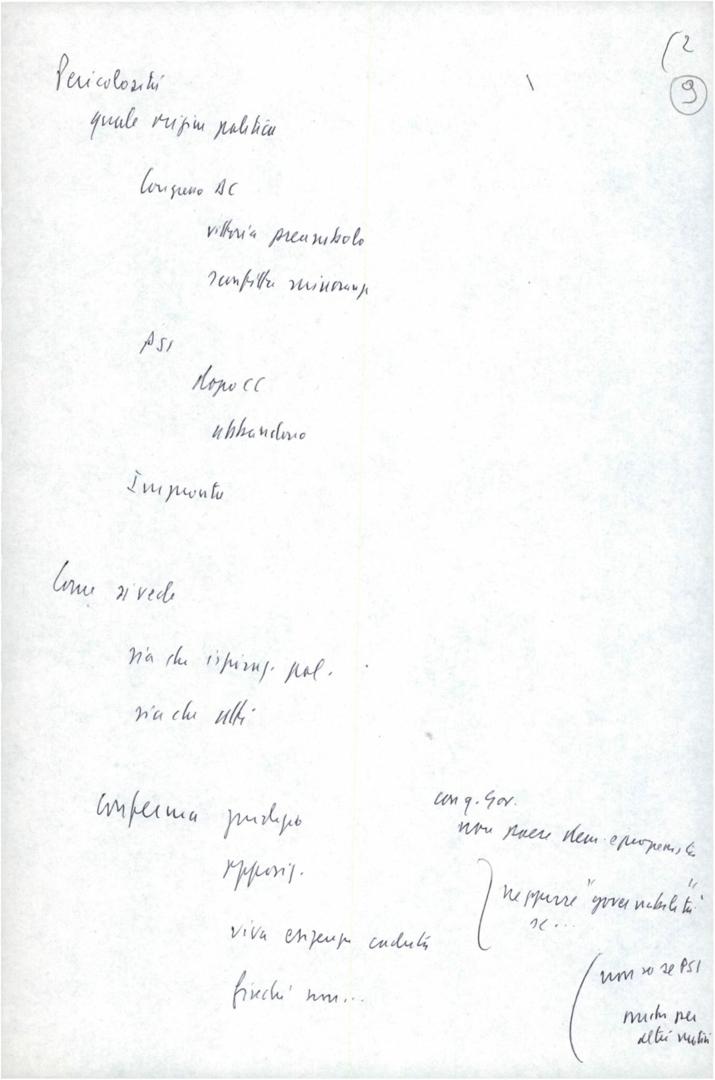 (2
9
Pericolosità
quale origine politica
Congresso DC
vittoria preambolo
sconfitta minoranze
PSI
dopo CC
abbandono
Impronta
Come si vede
sia che ispiraz. pol.
sia che atti
conferma giudizio
opposiz.
viva esigenza caduta
finché non...
con q. Gov.
non paese dem. e
neppure "governabilità"
se...
non so se PSI
anche per
altri motivi